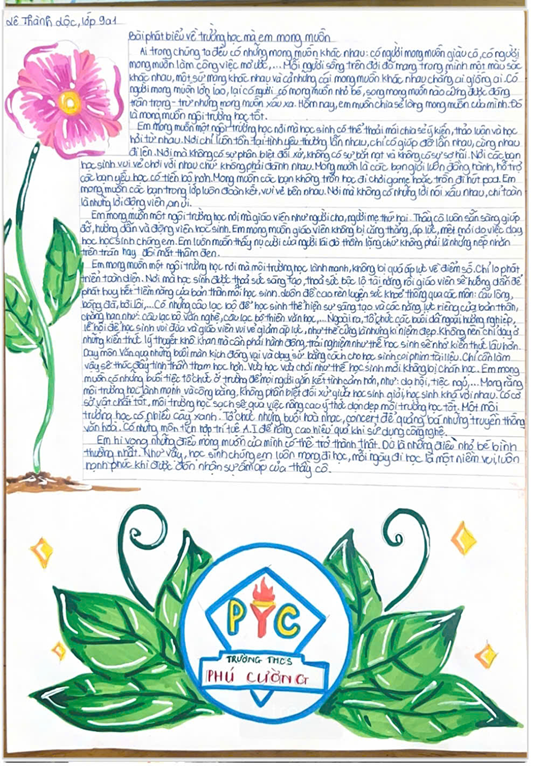 Lê Thành Lộc, lớp 9a1
Bài phát biểu về trường học mà em mong muốn
Ai trong chúng ta đều có những mong muốn khác nhau: có người mong muốn giàu có, có người
mong muốn làm công việc mơ ước,... Mỗi người sống trên đời đã mang trong mình một màu sắc
khác nhau, một sứ mạng khác nhau và cả những cái mong muốn khác nhau chẳng ai giống ai. Có
người mong muốn lớn lao, lại có người có mong muốn nhỏ bé, song mong muốn nào cũng được đáng
trân trọng - trừ những mong muốn xấu xa. Hôm nay, em muốn chia sẻ lòng mong muốn của mình. Đó
là mong muốn ngôi trường học tốt.
Em mong muốn một ngôi trường học nơi mà học sinh có thể thoải mái chia sẻ ý kiến, thảo luận và học
hỏi từ nhau. Nơi chỉ luôn tồn tại tình yêu thương lẫn nhau, chỉ có giúp đỡ lẫn nhau, cùng nhau
đi lên. Nơi mà không có sự phân biệt đối xử, không có sự bắt nạt và không có sự sợ hãi. Nơi các bạn
học sinh vui vẻ chơi với nhau chứ không phải đánh nhau. Mong muốn là các bạn giỏi luôn đồng hành, hỗ trợ
các bạn yếu học có tiến bộ hơn. Mong muốn các bạn không trốn học đi chơi game hoặc trốn đi hút pod. Em
mong muốn các bạn trong lớp luôn đoàn kết, vui vẻ bên nhau. Nơi mà không có những lời nói xấu nhau, chỉ toàn
là những lời động viên, an ủi.
Em mong muốn một ngôi trường học nơi mà giáo viên như người cha, người mẹ thứ hai. Thầy cô luôn sẵn sàng giúp
đỡ, hướng dẫn và động viên học sinh. Em mong muốn giáo viên không bị căng thẳng, áp lực, mệt mỏi do việc dạy
học học sinh chúng em. Em luôn muốn thấy nụ cười của người lái đò thầm lặng chứ không phải là những nếp nhăn
trên trán hay đôi mắt thâm đen.
Em mong muốn một ngôi trường học nơi mà môi trường học lành mạnh, không bị quá áp lực về điểm số. Chỉ lo phát
triển toàn diện. Nơi mà học sinh được thoả sức sáng tạo, thoả sức bộc lộ tài năng rồi giáo viên sẽ hướng dẫn để
phát huy hết tiềm năng của bản thân mỗi học sinh. để cao rèn luyện sức khoẻ thông qua các môn: cầu lông,
bóng đá, bơi lội,... Có những câu lạc bộ để học sinh thể hiện sự sáng tạo và các năng lực riêng của bản thân,
chẳng hạn như: câu lạc bộ văn nghệ, câu lạc bộ thiên văn học,... Ngoài ra, tổ chức các buổi dã ngoại hướng nghiệp,
lễ hội để học sinh vui đùa và giáo viên vui vẻ giảm áp lực, như thế cũng là những kỉ niệm đẹp. Không nên chỉ dạy ở
những kiến thức lý thuyết khô khan mà cần phải hành động, trải nghiệm như thế học sinh sẽ nhớ kiến thức lâu hơn.
Dạy môn Văn qua những buổi màn kịch đóng vai và dạy sử bằng cách cho học sinh coi phim tài liệu. Chỉ cần làm
vậy sẽ thúc đẩy tinh thần tham học hơn. Vừa học vừa chơi như thế học sinh mới không bị chán học. Em mong
muốn có những buổi tiệc tổ chức ở trường để mọi người gắn kết tình cảm hơn, như: dạ hội, tiệc ngủ,... Mong rằng
môi trường học lành mạnh và công bằng, không phân biệt đối xử giữa học sinh giỏi, học sinh khá với nhau. Có cơ
sở vật chất tốt, môi trường học sạch sẽ qua việc nâng cao ý thức dọn dẹp môi trường học tốt. Một môi
trường học có nhiều cây xanh. Tổ chức những buổi hoà nhạc, concert để quảng bá những truyền thống
văn hoá. Có những môn tiện hợp trí tuệ A.I để nâng cao hiệu quả khi sử dụng công nghệ.
Em hi vọng những điều mong muốn của mình có thể trở thành thật. Đó là những điều nhỏ bé bình
thường nhất. Như vậy, học sinh chúng em luôn mong đi học, mỗi ngày đi học là một niềm vui, luôn
hạnh phúc khi được đón nhận sự ấm áp của thầy cô.
PYC
TRƯỜNG THCS
PHÚ CƯỜNG